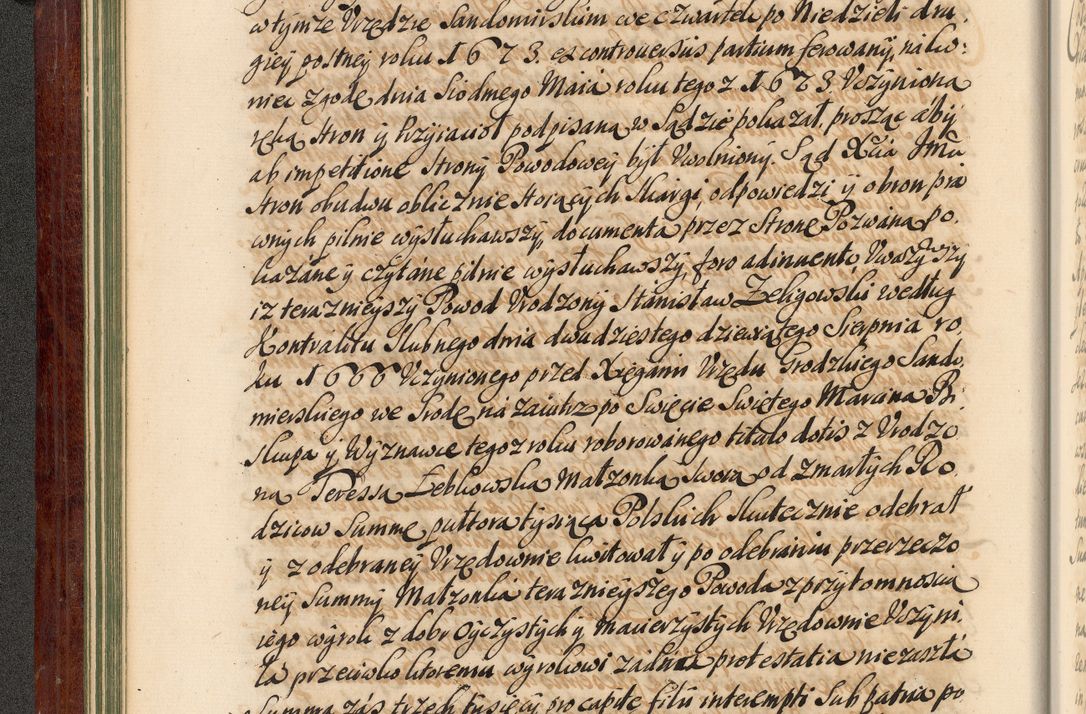 wtymze Vrzędzie Sandomirskim we czwartek po Niedzieli dru,
giey postney roku 1673. ex controuersiis partium ferowany, na ko:
niec zgodę dnia Siodmego Maia roku tegoz 1673 Vczyniona
ręką stron y Przyiacioł podpisaną w Sądzie pokazał, prosząc aby
ab impetitione Strony Powodowey był Vwolniony. Sąd Xcia Jmci
stron obudwu oblicznie stoiących skargi, odpowiedzi y obron pra
wnych pilnie wysłuchawszy, documenta przez Stronę Pozwaną po,
kazane y czytane pilnie wysłuchawszy, foro adinuento, Vwazywszy
iz teraznieyszy Powod Vrodzony Stanisław Zeligowski według
Kontraktu slubnego dnia dwadziestego dziewiątego Sierpnia ro,
ku 1666 Vczynionego przed Xięgami Vrzędu Grodzkiego Sando,
mierskiego we Srodę na zaiutrz po Swięcie Swiętego Marcina Bi
skupa y Wyznawce tegoz roku roborowanego titulo dotis z Vrodzo
ną Teressą Zebkowską Małzonką swoią od zmarłych Ro
dzicow Summę pułtora tysiąca Polskich skutecznie odebrał
y z odebraney Vrzędownie kwitował y po odebraniu przerzeczo
ney Summy Małzonka teraznieyszego Powoda z przytomnoscią
iego wyrok z dobr Oyczystych y Macierzystych Vrzędownie Vczyni,
ła przeciwko ktoremu wyrokowi zadna protestatia niezaszła
Summa zás trzech tysięcy pro capite filii interempti Sub fatia po